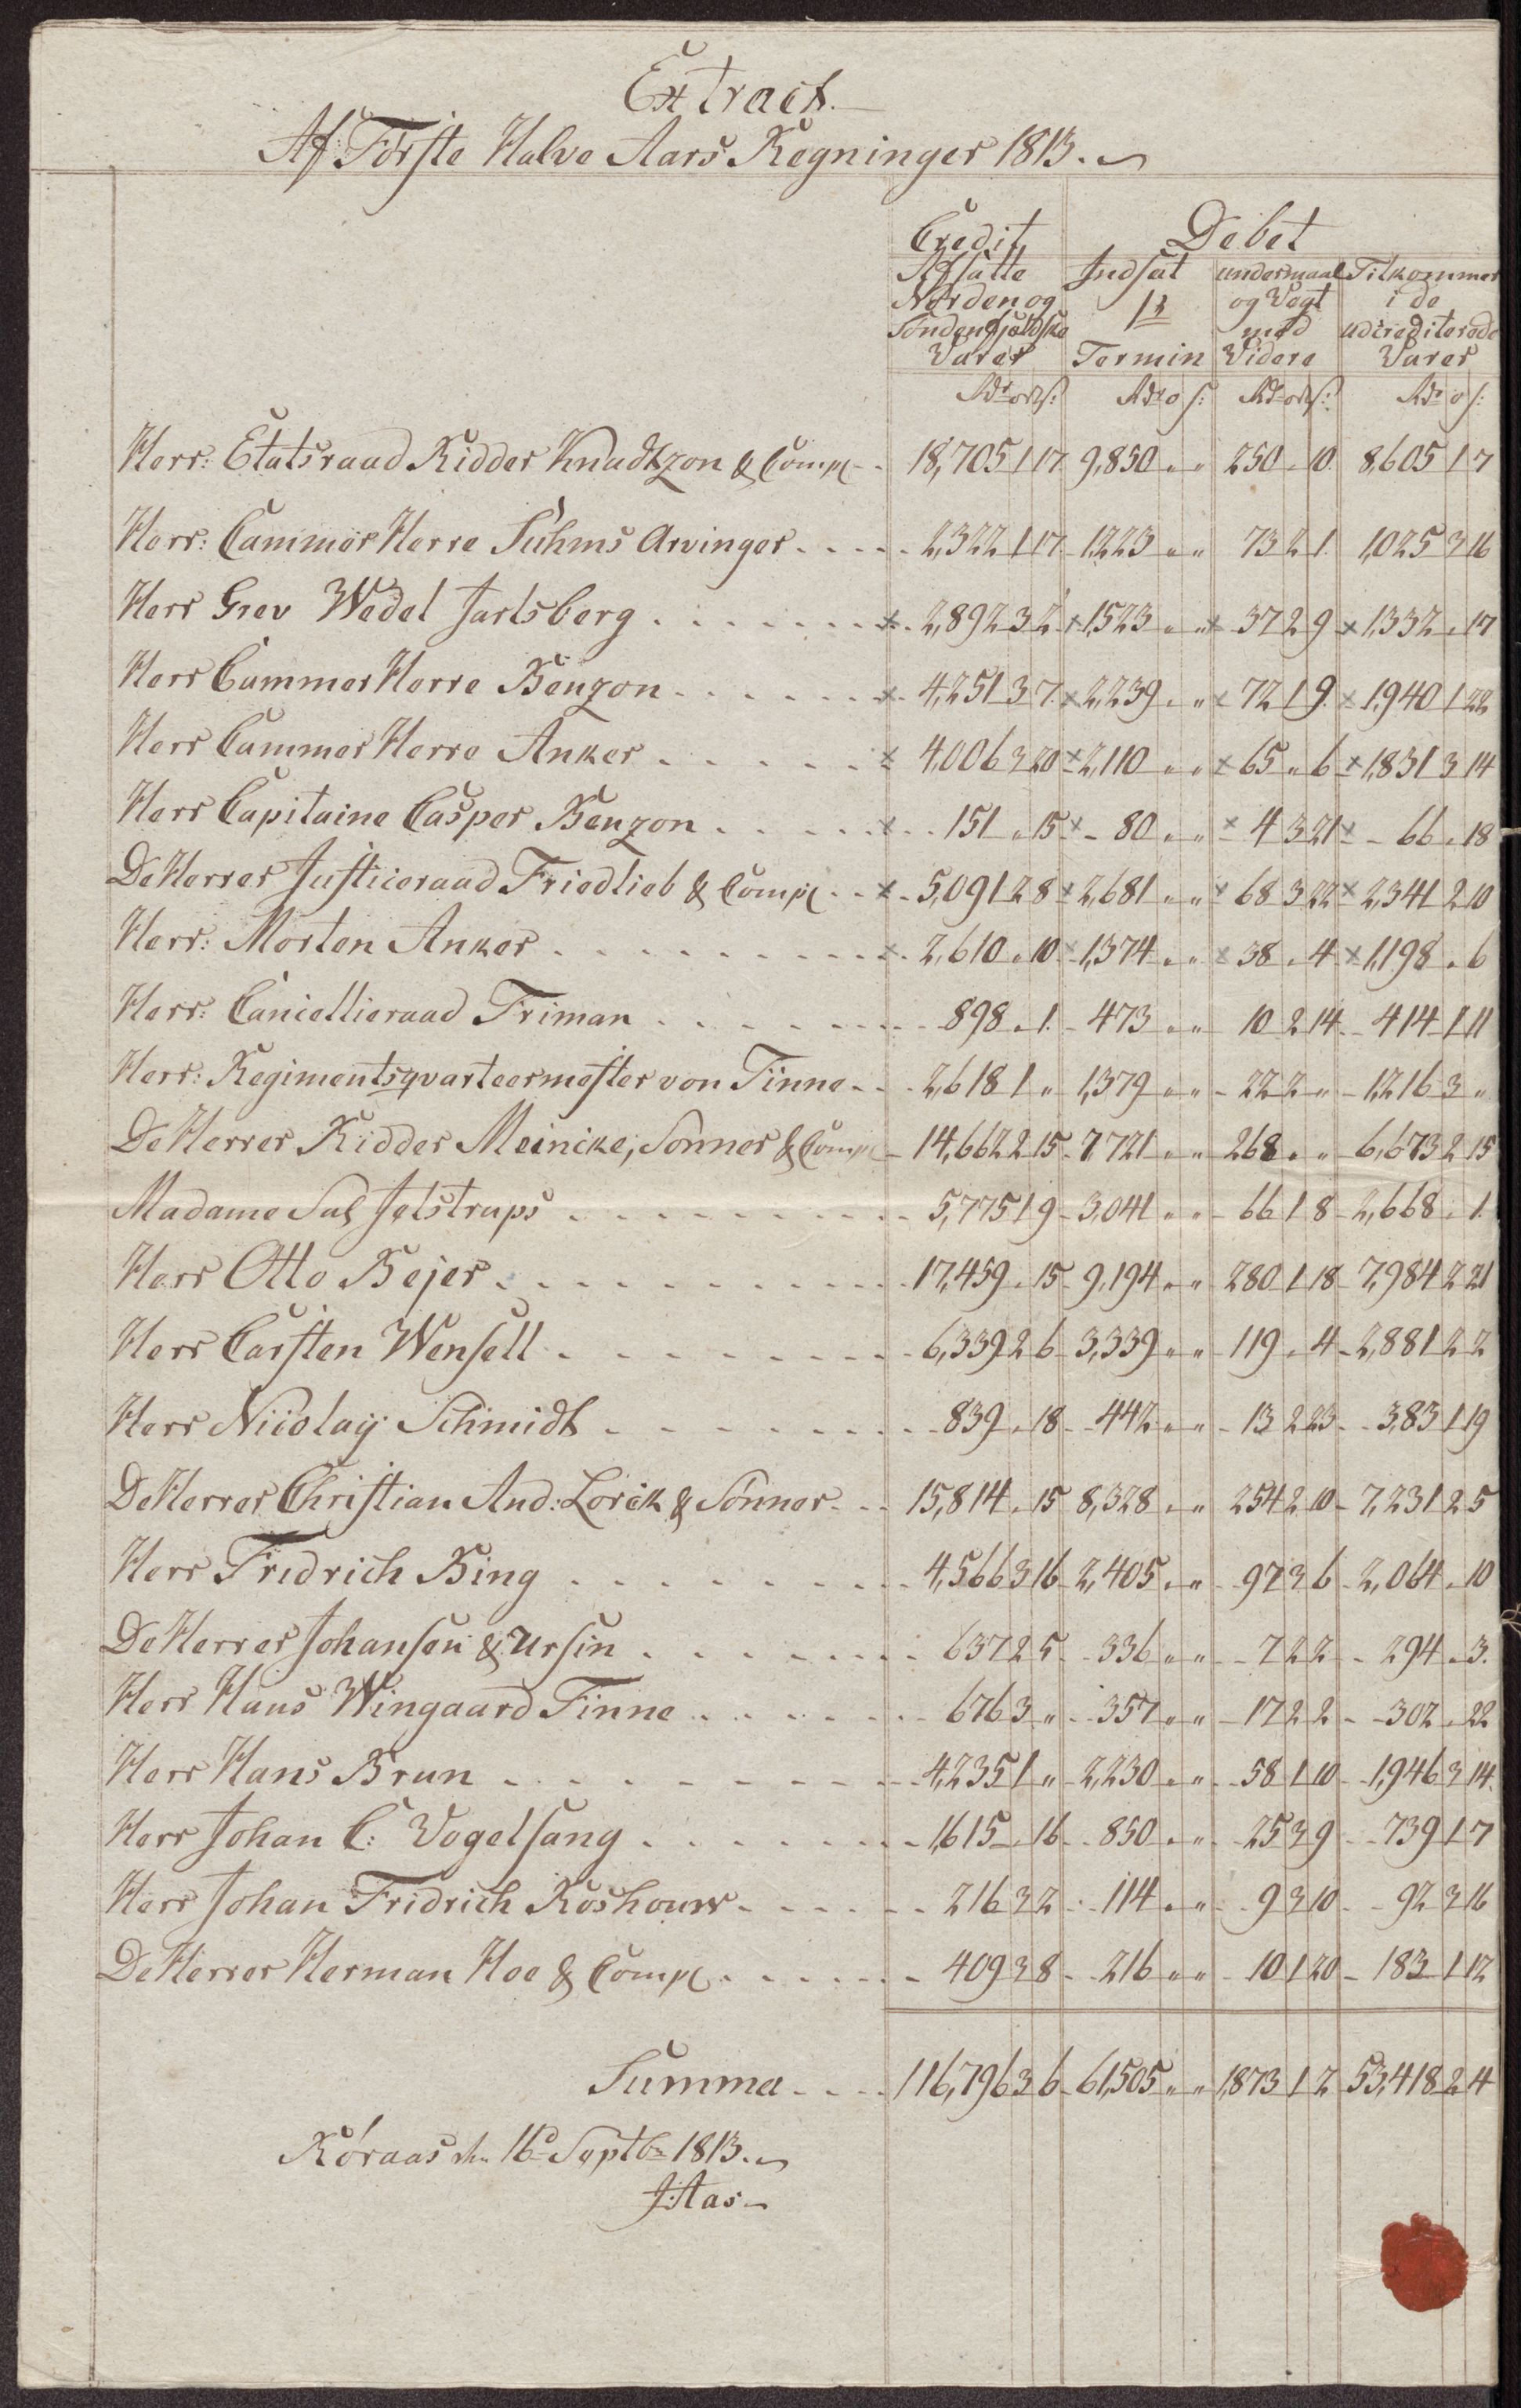 Extract.
Af Første Halve Aars Regninger 1813.
Credit Debet
Afsatte Indsat undermaal Tilkommer
Norden og 1te og Vegt i de
Søndenfjeldske med udcrediterede
Varer Termin Videre Varer
Rdr ort s: Rdr o s: Rdr ort s: Rdr o s:
Herr: Etatsraad Ridder Knudtzon & Comp 18,705 1 17 9,850 " " 250 " 10 8,605 1 7
Herr: Cammer Herre Suhms Arvinger 2,322 1 17 1,223 " " 73 2 1 1,025 3 16
Herr Grev Wedel Jarlsberg x 2,892 3 2 x 1,523 " " x 37 2 9 x 1,332 " 17
Herr Cammer Herre Benzon x 4,251 3 7 x 2,239 " " x 72 1 9 x 1,940 1 22
Herr Cammer Herre Anker x 4,006 3 20 x 2,110 " " x 65 " 6 x 1,831 3 14
Herr Capitaine Casper Benzon x 151 " 15 x 80 " " x 4 3 21 x 66 " 18
De Herrer Justiceraad Friedlieb & Comp x 5,091 2 8 x 2,681 " " x 68 3 22 x 2,341 2 10
Herr: Morten Anker x 2,610 " 10 x 1,374 " " x 38 " 4 x 1,198 " 6
Herr: Cancellieraad Friman 898 " 1 473 " " 10 2 14 414 1 11
Herr: Regimentsqvarteermester von Finne 2,618 1 " 1,379 " " 22 2 " 1,216 3 "
De Herrer Ridder Meincke, Sønner & Comp 14,662 2 15 7,721 " " 268 " " 6,673 2 15
Madame Sal Jelstrups 5,775 1 9 3,041 " " 66 1 8 2,668 " 1
Herr Otto Bejer 17,459 " 15 9,194 " " 280 1 18 7,984 2 21
Herr Carsten Wensell 6,339 2 6 3,339 " " 119 " 4 2,881 2 2
Herr Nicolay Schmidt 839 " 18 442 " " 13 2 23 383 1 19
De Herrer Christian And: Lorck & Sønner 15,814 " 15 8,328 " " 254 2 10 7,231 2 5
Herr Fredrich Bing 4,566 3 16 2,405 " " 97 3 6 2,064 " 10
De Herrer Johansen & Ursin 637 2 5 336 " " 7 2 2 294 " 3
Herr Hans Wingaard Finne 676 3 " 357 " " 17 2 2 302 " 22
Herr Hans Brun 4,235 1 " 2,230 " " 58 1 10 1,946 3 14
Herr Johan C: Vogelsang 1,615 " 16 850 " " 25 3 9 739 1 7
Herr Johan Fridrich Roshouw 216 3 2 114 " " 9 3 10 92 3 16
De Herrer Herman Hoe & Comp 409 3 8 216 " " 10 1 20 183 1 12
Summa 116,796 3 6 61,505 " " 1,873 1 2 53,418 2 4
Røraas d. 16d Septbr 1813.
J: Aas